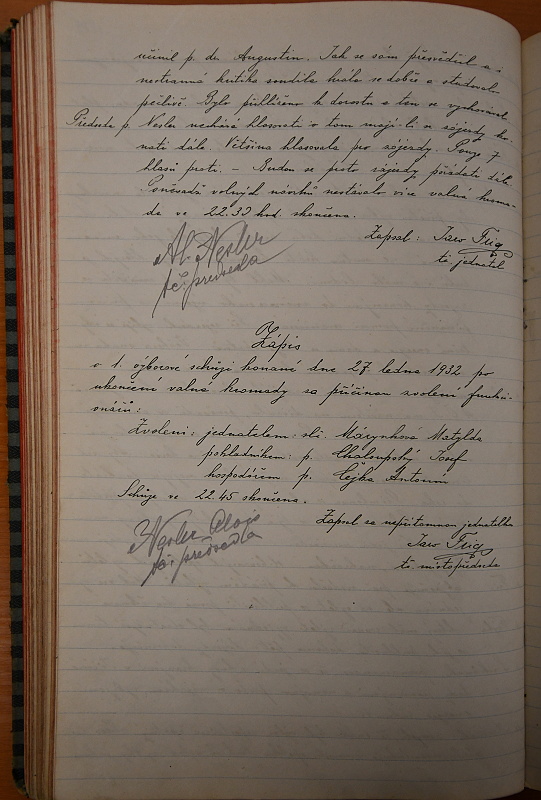 učinil p. dr. Augustin. Jak se sám přesvědčil a i
nestranná kritika soudila hrálo se dobře a studoval
pečlivě. Bylo přihlíženo k dorostu a ten se vychovával
Předseda p. Nesler nechává hlasovati o tom mají-li se zájezdy ko-
nati dále. Většina hlasovala pro zájezdy. Pouze 7
hlasů proti. – Budou se proto zájezdy pořádati dále.
Poněvadž volných návrhů nestávalo více valná hroma-
da ve 22.30 hod. skončena.
Zapsal: Jaro
Al. Nesler
t.č. předseda
tč jednatel
Zápis
o 1. výborové schůzi konané dne 27 ledna 1932 po
ukončení valné hromady za příčinou zvolení funkci-
onářů:
Zvoleni: jednatelem: slč. Márynková Matylda
pokladníkem: p. Chaloupský Josef
hospodářem p. Čejka Antonín
Schůze ve 22.45 skončena.
Zapsal za nepřítomnou jednatelku
Nesler Alois
t.č. předseda
Jaro
tč místopředseda